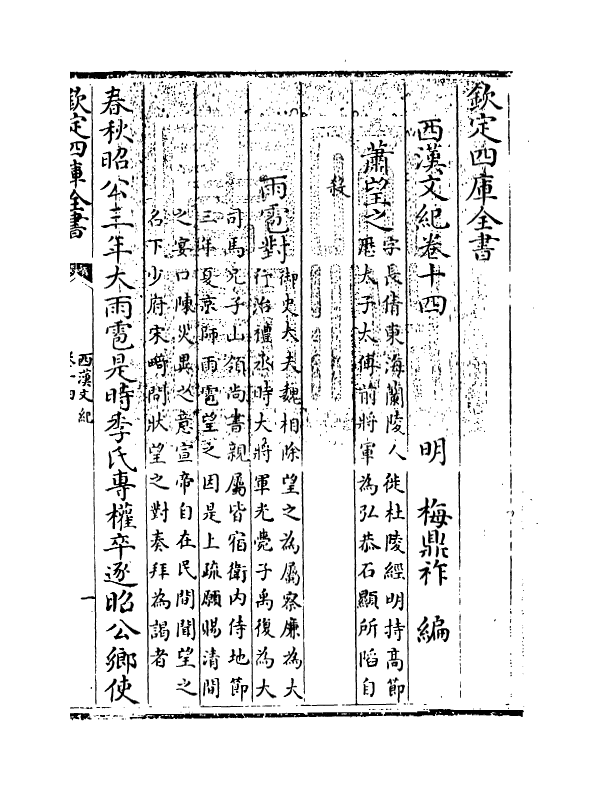 欽定四庫全書
西漢文紀卷十四
明 梅鼎祚 編
蕭望之
字長倩東海蘭陵人徙杜陵經明持高節
歷太子太傅前將軍為弘恭石顯所陷自
殺
雨雹對
御史大夫魏相除望之為屬察廉為大
行治禮丞時大將軍光薨子禹復為大
司馬兄子山領尚書親屬皆宿衛內侍地節
三年夏京師雨雹望之因是上疏願賜清閒
之宴口陳災異之意宣帝自在民間聞望之
名下少府宋畸問狀望之對奏拜為謁者
春秋昭公三年大雨雹是時季氏專權卒逐昭公鄉使
欽定四庫全書
西漢文紀
卷十四
一